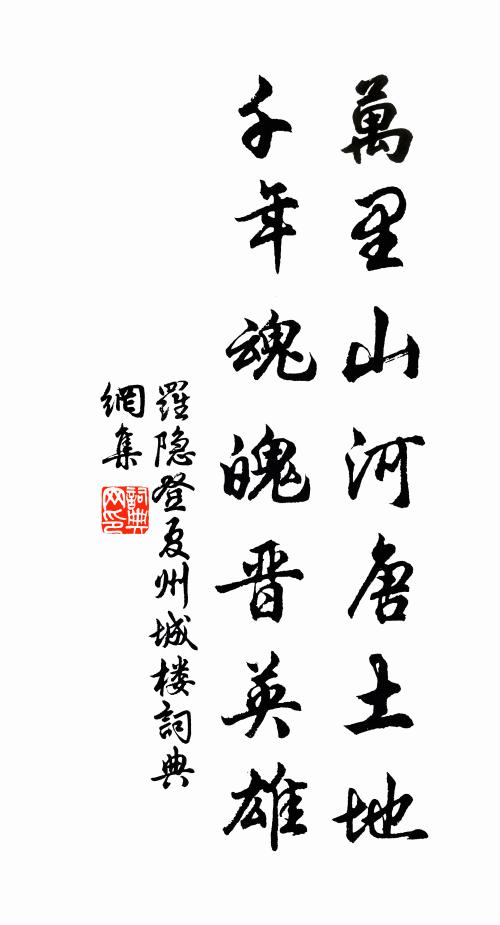 萬里山河唐土地
千年魂魄晋英雄
羅隐登夏州城楼詞典
網集
詞典
网印